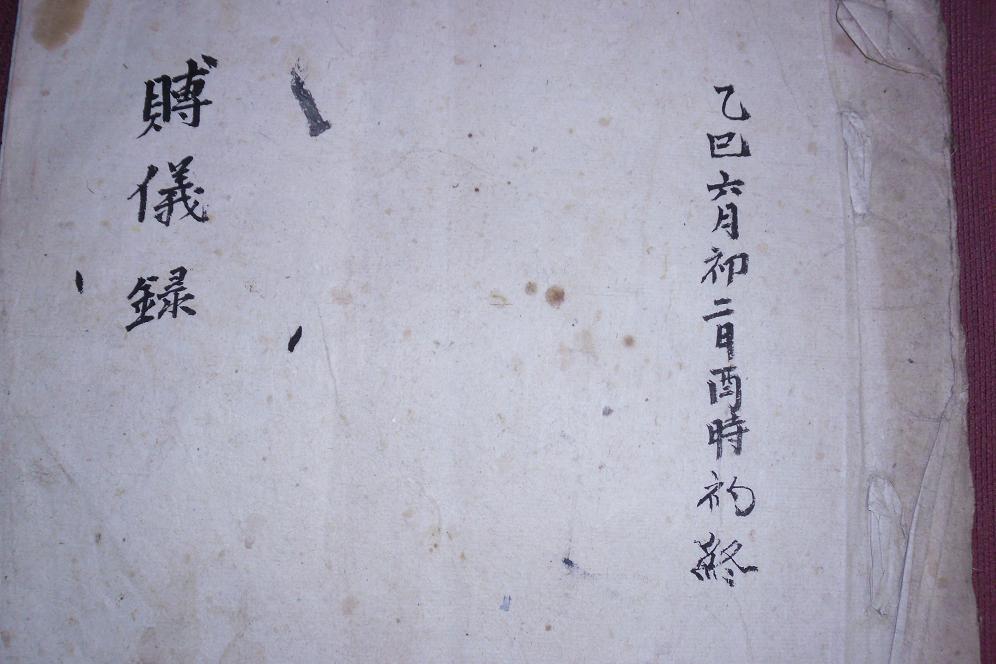 乙巳六月初二日酉時礿終
賻儀録